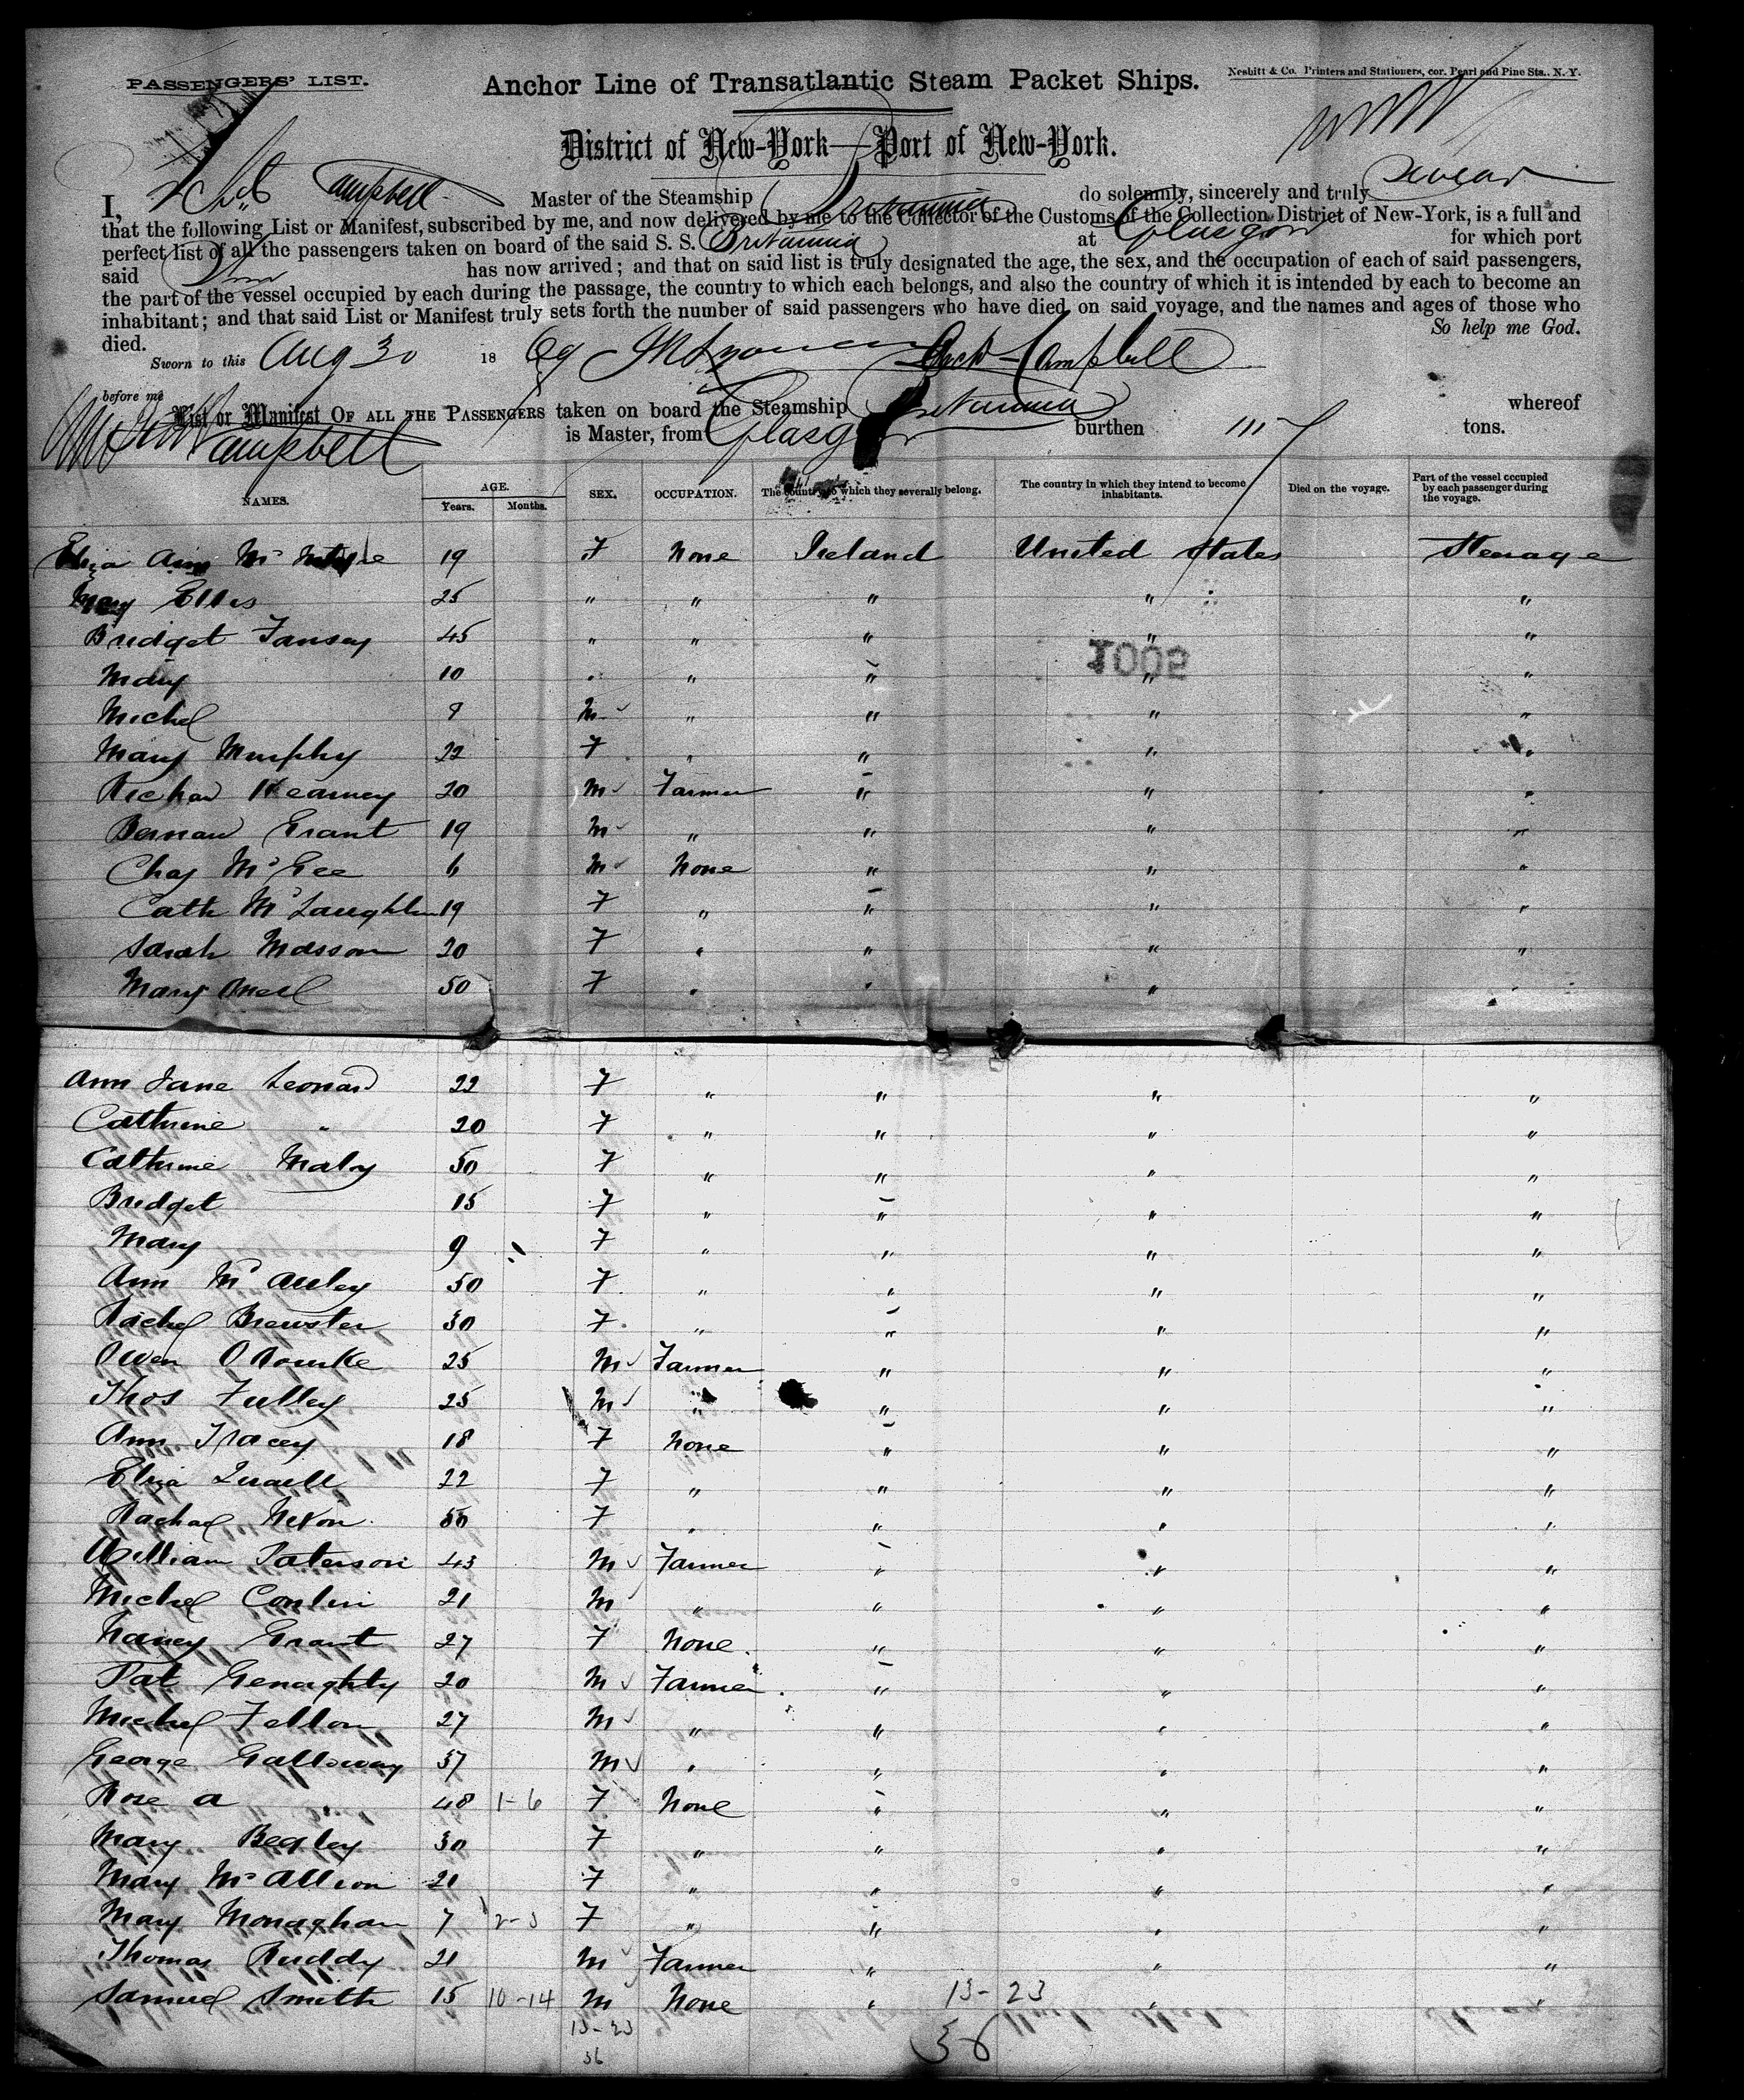 PASSENGERS' LIST.
Anchor Line of Transatlantic Steam Packet Ships.
Nesbitt & Co. Printers and Stationers, cor. Pearl and Pine Sts., N. Y.
District of New-York—Port of New-York.
I, Campbell Master of the Steamship Britannia do solemnly, sincerely and truly swear
that the following List or Manifest, subscribed by me, and now delivered by me to the Collector of the Customs of the Collection District of New-York, is a full and
perfect list of all the passengers taken on board of the said S. S. Britannia at Glasgow for which port
said has now arrived; and that on said list is truly designated the age, the sex, and the occupation of each of said passengers,
the part of the vessel occupied by each during the passage, the country to which each belongs, and also the country of which it is intended by each to become an
inhabitant; and that said List or Manifest truly sets forth the number of said passengers who have died on said voyage, and the names and ages of those who
died. So help me God.
Sworn to this Aug 30 1869 Campbell
before me
List or Manifest OF ALL THE PASSENGERS taken on board the Steamship Britannia whereof
Campbell is Master, from Glasgow burthen tons.
NAMES. AGE. Years. Months. SEX. OCCUPATION. The country to which they severally belong. The country in which they intend to become inhabitants. Died on the voyage. Part of the vessel occupied by each passenger during the voyage.
Eliza Ann 19 F None Ireland United States Steerage
Mary Ellis 25 " " " " "
Bridget 45 " " " " "
1002
Mary 10 " " " " "
Michel 9 M " " " "
Mary Murphy 22 F " " " "
Richard Kearney 20 M Farmer " " "
Bernard Grant 19 M " " " "
Chas McGee 6 M None " " "
Cath McLaughlin 19 F " " " "
Sarah Masson 20 F " " " "
Mary Oneil 50 F " " " "
Ann Jane Leonard 22 F " " " "
Cathrine " 20 F " " " "
Cathrine Maly 50 F " " " "
Bridget 15 F " " " "
Mary 9 F " " " "
Ann McAuley 50 F " " " "
Rachel Brewster 30 F " " " "
Owen O Rourke 25 M Farmer " " "
Thos Fulley 25 M " " " "
Ann Tracey 18 F None " " "
Eliza 22 F " " " "
Rachael Nixon 50 F " " " "
William Paterson 43 M Farmer " " "
Michel Conlin 21 M " " " "
Nancy Grant 27 F None " " "
Pat Geraghty 20 M Farmer " " "
Michel Fellon 27 M " " " "
George Galloway 37 M " " " "
Rose A " 48 1-6 F None " " "
Mary Begley 30 F " " " "
Mary McAllion 21 F " " " "
Mary Monaghan 7 2-3 F " " " "
Thomas Ruddy 21 M Farmer " " "
Samuel Smith 15 10-14 M None " " "
13-23
13-23
36
36